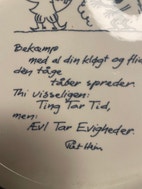 Bekæmp
med al din kløgt og flid
den tåge
tåber spreder.
Thi visseligen:
Ting Tar Tid,
men:
Ævl Tar Evigheder.
Piet Hein